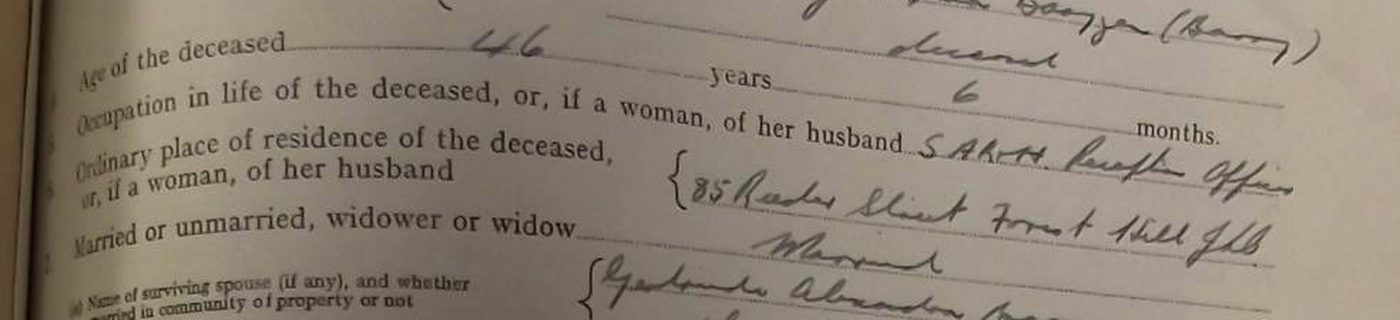 (Barry)
deceased
Age of the deceased 46 years 6 months.
Occupation in life of the deceased, or, if a woman, of her husband S A R & H. Reception Officer
Ordinary place of residence of the deceased,
or, if a woman, of her husband { 85 Street Forest Hill Jhb
Married or unmarried, widower or widow Married
(a) Name of surviving spouse (if any), and whether {
married in community of property or not